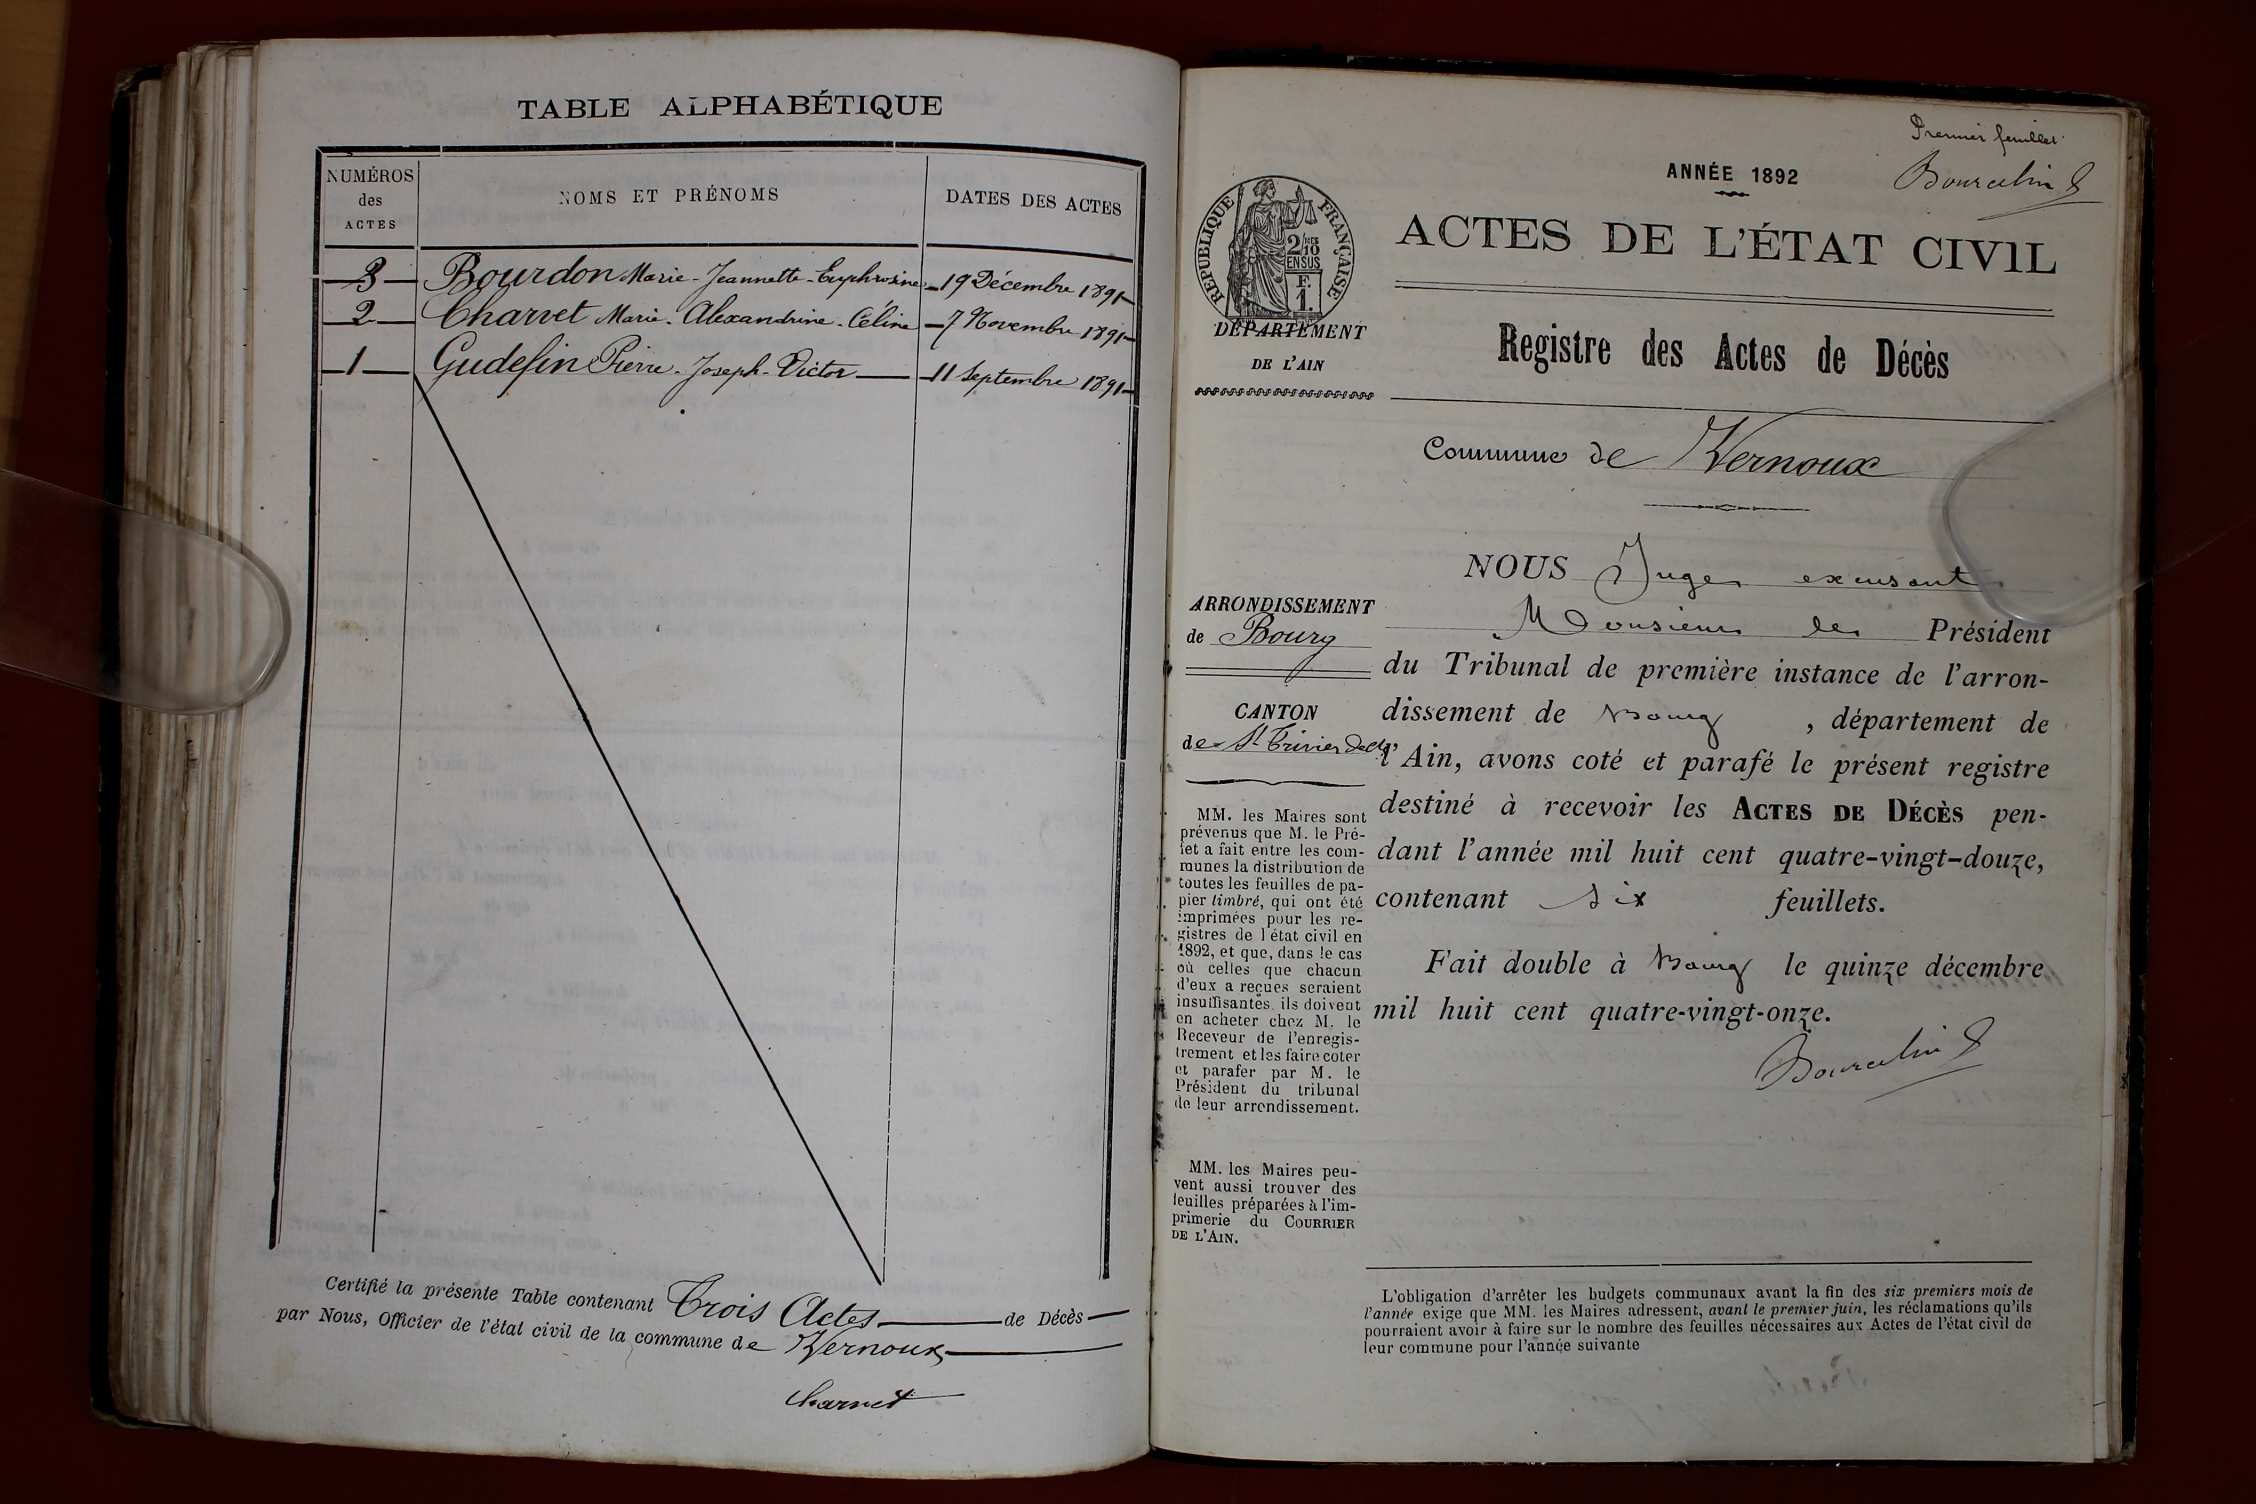 TABLE ALPHABÉTIQUE
NUMÉROS des ACTES
NOMS ET PRÉNOMS
DATES DES ACTES
3 Bourdon Marie-Jeannette-Euphrosine 19 Décembre 1891
2 Charvet Marie-Alexandrine-Céline 7 Novembre 1891
1 Gudefin Pierre-Joseph-Victor 11 Septembre 1891
Certifié la présente Table contenant Trois Actes de Décès
par Nous, Officier de l'état civil de la commune de Vernoux
Charvet
Premier feuillet
ANNÉE 1892
RÉPUBLIQUE FRANÇAISE
2/10 EN SUS
F. 1.
ACTES DE L'ÉTAT CIVIL
DÉPARTEMENT
DE L'AIN
Registre des Actes de Décès
Commune de Vernoux
NOUS Juge excusant
Monsieur le Président
du Tribunal de première instance de l'arron-
dissement de Bourg , département de
l'Ain, avons coté et parafé le présent registre
destiné à recevoir les ACTES DE DÉCÈS pen-
dant l'année mil huit cent quatre-vingt-douze,
contenant six feuillets.
Fait double à Bourg le quinze décembre
mil huit cent quatre-vingt-onze.
ARRONDISSEMENT
de Bourg
CANTON
de St Trivier de
MM. les Maires sont
prévenus que M. le Pré-
fet a fait entre les com-
munes la distribution de
toutes les feuilles de pa-
pier timbré, qui ont été
imprimées pour les re-
gistres de l'état civil en
1892, et que, dans le cas
où celles que chacun
d'eux a reçues seraient
insuffisantes, ils doivent
en acheter chez M. le
Receveur de l'enregis-
trement et les faire coter
et parafer par M. le
Président du tribunal
de leur arrondissement.
MM. les Maires peu-
vent aussi trouver des
feuilles préparées à l'im-
primerie du COURRIER
DE L'AIN.
L'obligation d'arrêter les budgets communaux avant la fin des six premiers mois de
l'année exige que MM. les Maires adressent, avant le premier juin, les réclamations qu'ils
pourraient avoir à faire sur le nombre des feuilles nécessaires aux Actes de l'état civil de
leur commune pour l'année suivante